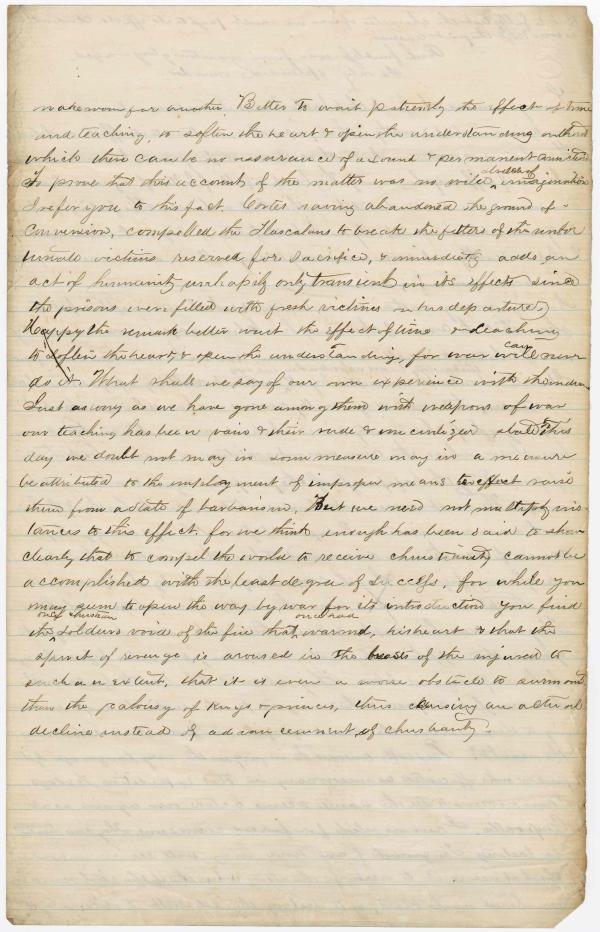 make room for another. Better to wait patiently the effect of time
and teaching, to soften the heart & open the understanding without
which there can be no assurance of a sound & permanent conviction
To prove that this account of the matter was no wild stretch of imagination
I refer you to this fact. Cortes having abandoned the ground of
conversion, compelled the Tlascalans to break the fetters of the unfor
tunate victims reserved for Sacrifice, & immediately adds an
act of humanity unhapily only transient in its effects since
the prisons were filled with fresh victims on his departure,
Happy the remark better wait the effect of time & teaching
to soften the heart, & open the understanding, for war can never
do it. What shall we say of our own experience with the indian
Just as long as we have gone among them with weapons of war
our teaching has been vain & their rude & uncivilized state This
day we doubt not may in some measure may in a measure
be attributed to the employment of improper means to effect raise
them from a state of barbarism. But we need not multiply ins-
tances to this effect, for we think enough has been said to show
clearly that to compel the world to receive christianity cannot be
accomplished with the least degree of success, for while you
may seem to open the way by war for its introduction you find
the once christian soldiers void of the fire that once had warmed, his heart & that the
spirit of revenge is aroused in the breasts of the injured to
such an extent, that it is even a worse obstacle to surmount
than the jealousy of Kings & princes, thus causing an actual
decline instead of advancement of christianity.